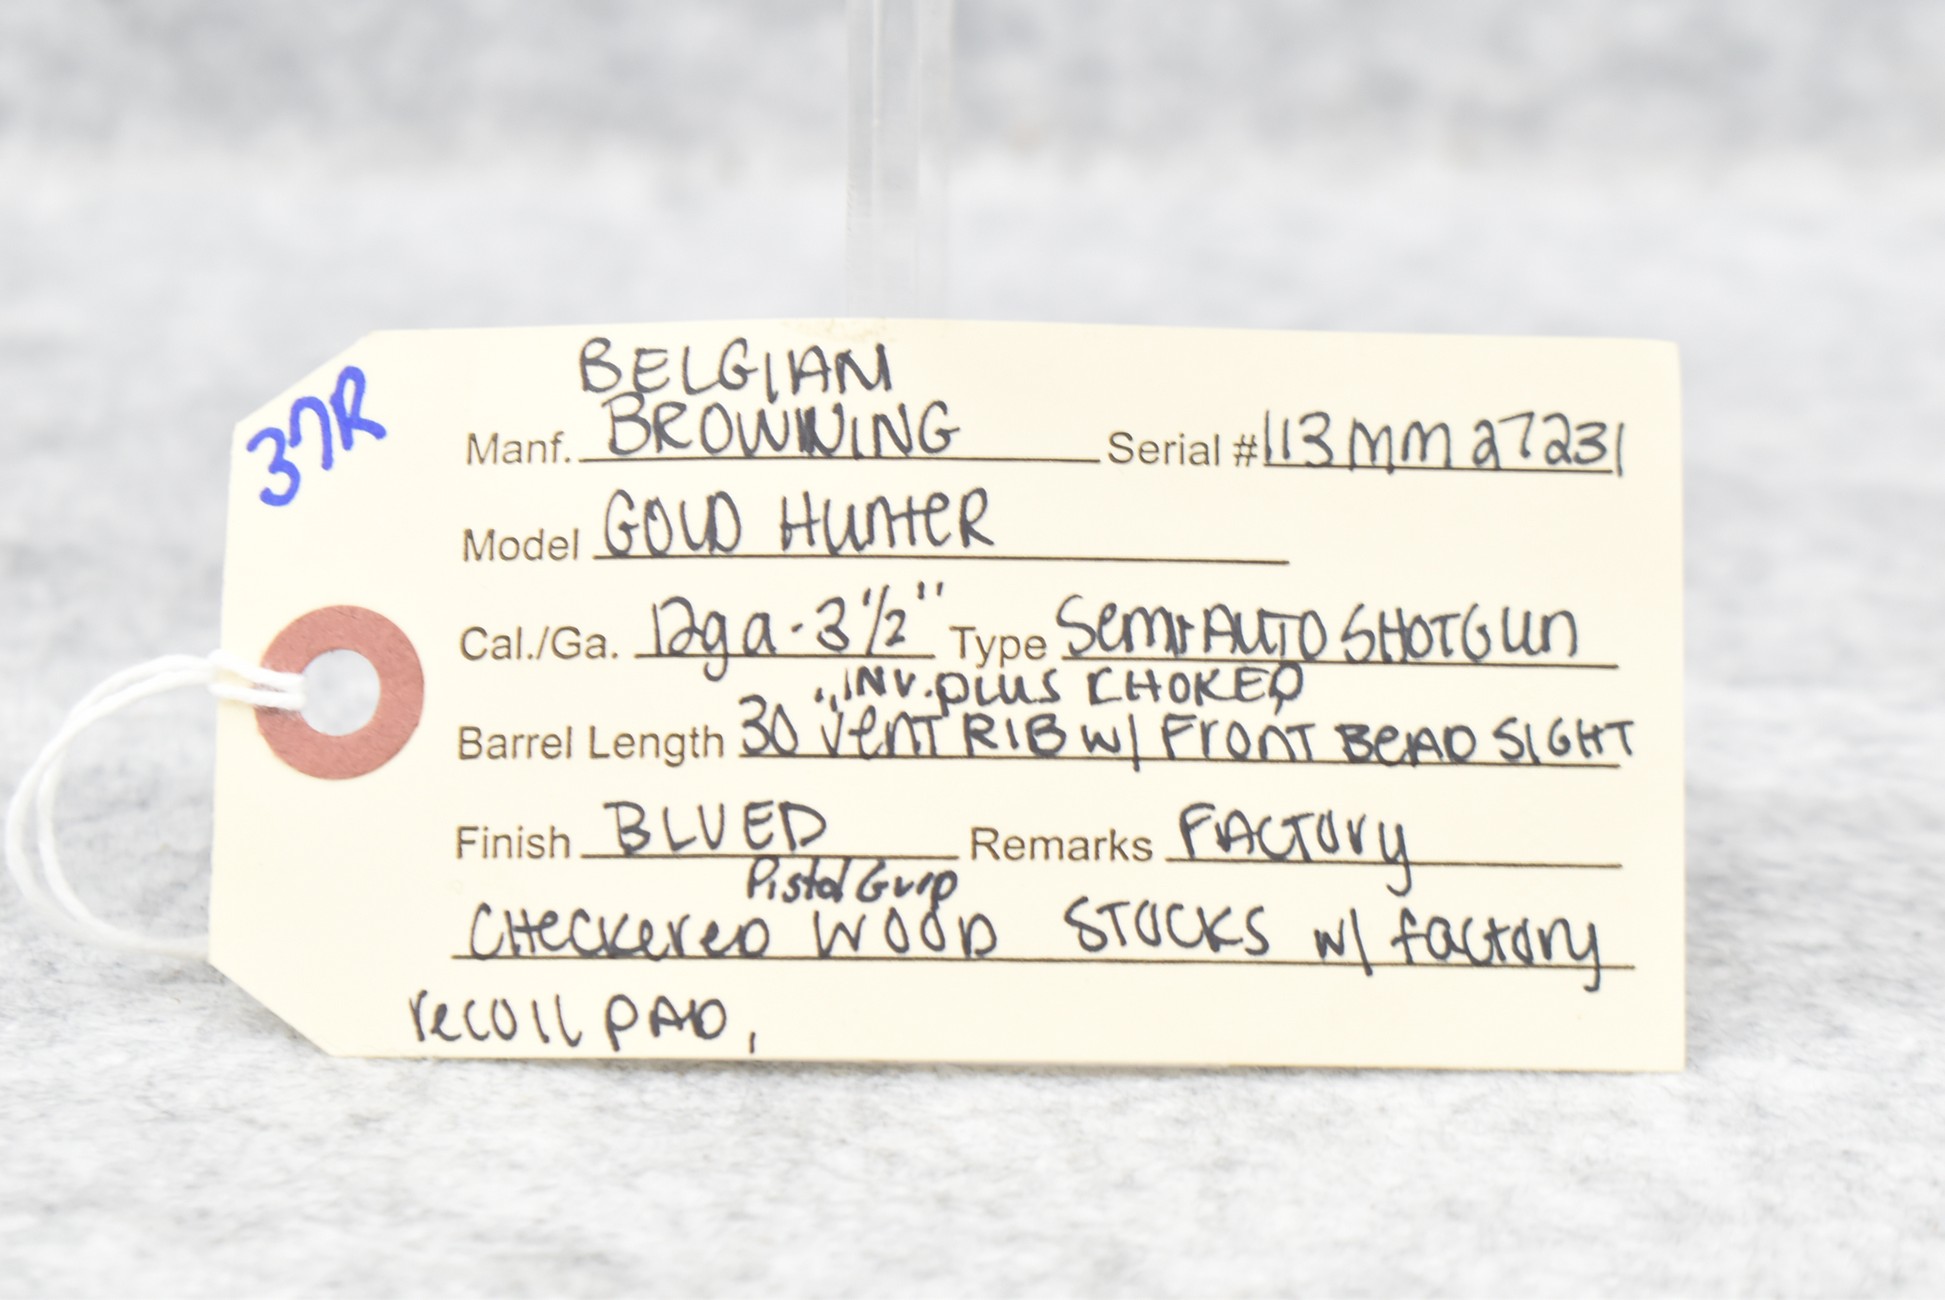 37R
BELGIAN
Manf. BROWNING Serial # 113MM27231
Model GOLD HUNTER
Cal./Ga. 12ga - 3 1/2" Type Semi AUTO SHOTGUN
INV. PLUS CHOKED
Barrel Length 30" Vent RIB w/ FRONT BEAD SIGHT
Finish BLUED Remarks FACTORY
Pistol Grip
CHECKERED WOOD STOCKS w/ factory
recoil PAD,